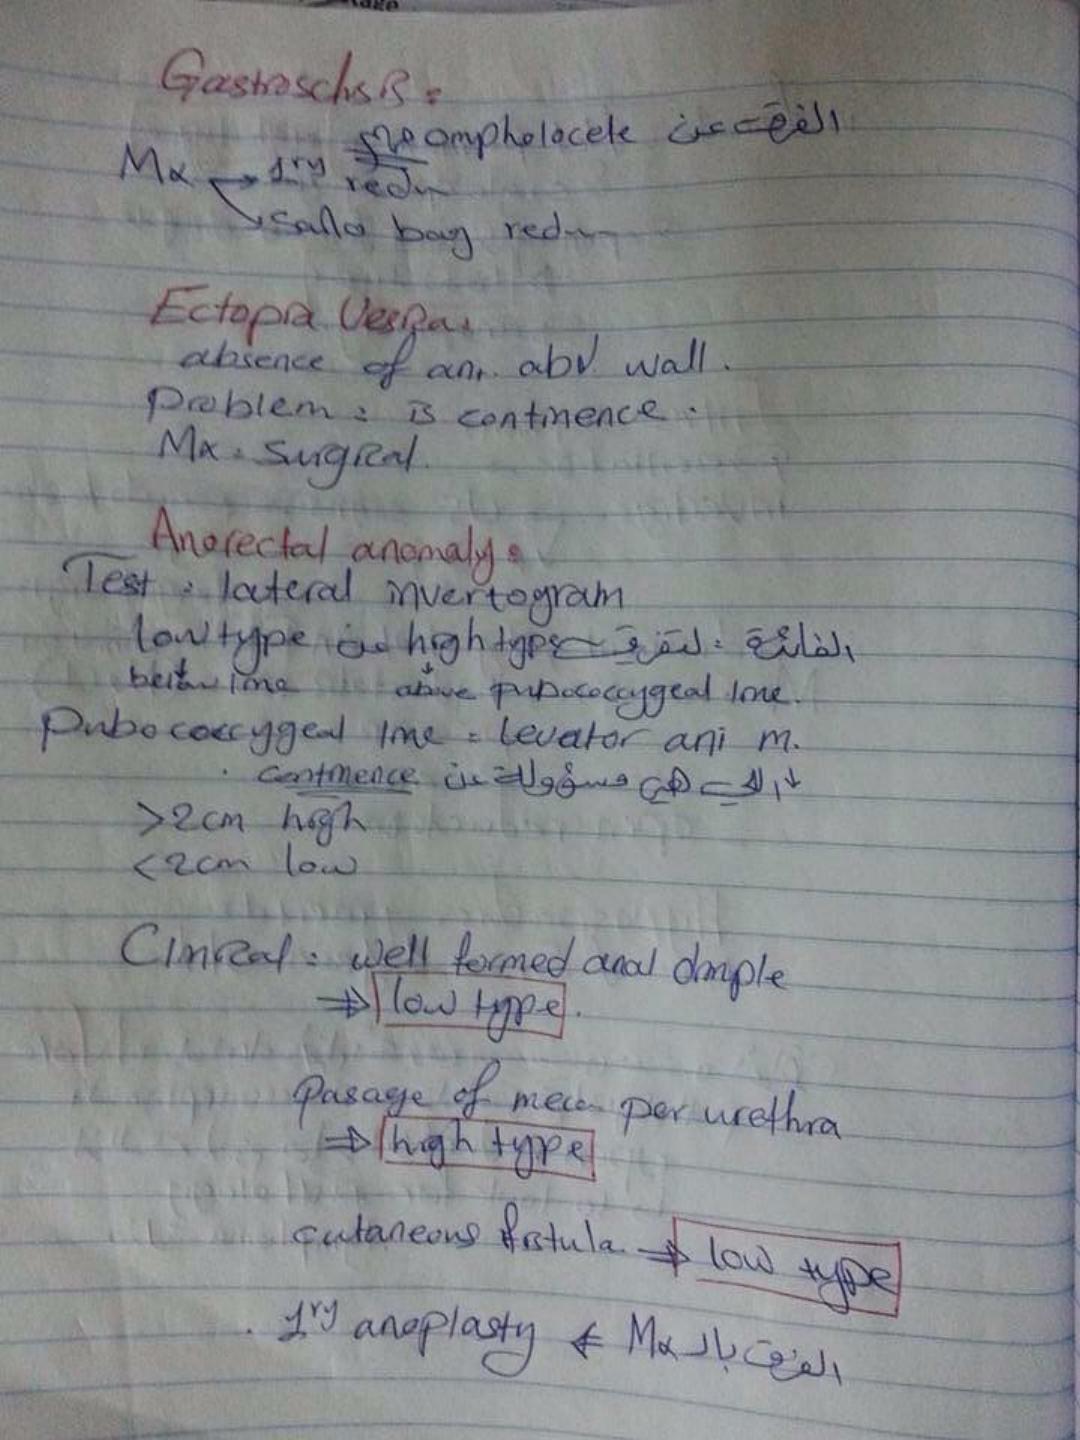 Gastroschsis :
الفرق عن ompholocele
Mx → 1ry redn
↘ sallo bag redn
Ectopia Vesica :
absence of ant. abd wall .
problem : is continence .
Mx : surgical .
Anorectal anomaly :
Test : lateral invertogram
الفائدة : لتفرق high type من low type
below line above pubococcygeal line .
Pubococcygeal line = levator ani m.
↓ الي هي مسؤولة عن continence .
>2cm high
<2cm low
Clinical : well formed anal dimple
⇒ low type .
pasage of mec per urethra
⇒ high type
cutaneous fistula ⇒ low type
الفرق بالـ Mx ⇐ 1ry anoplasty .